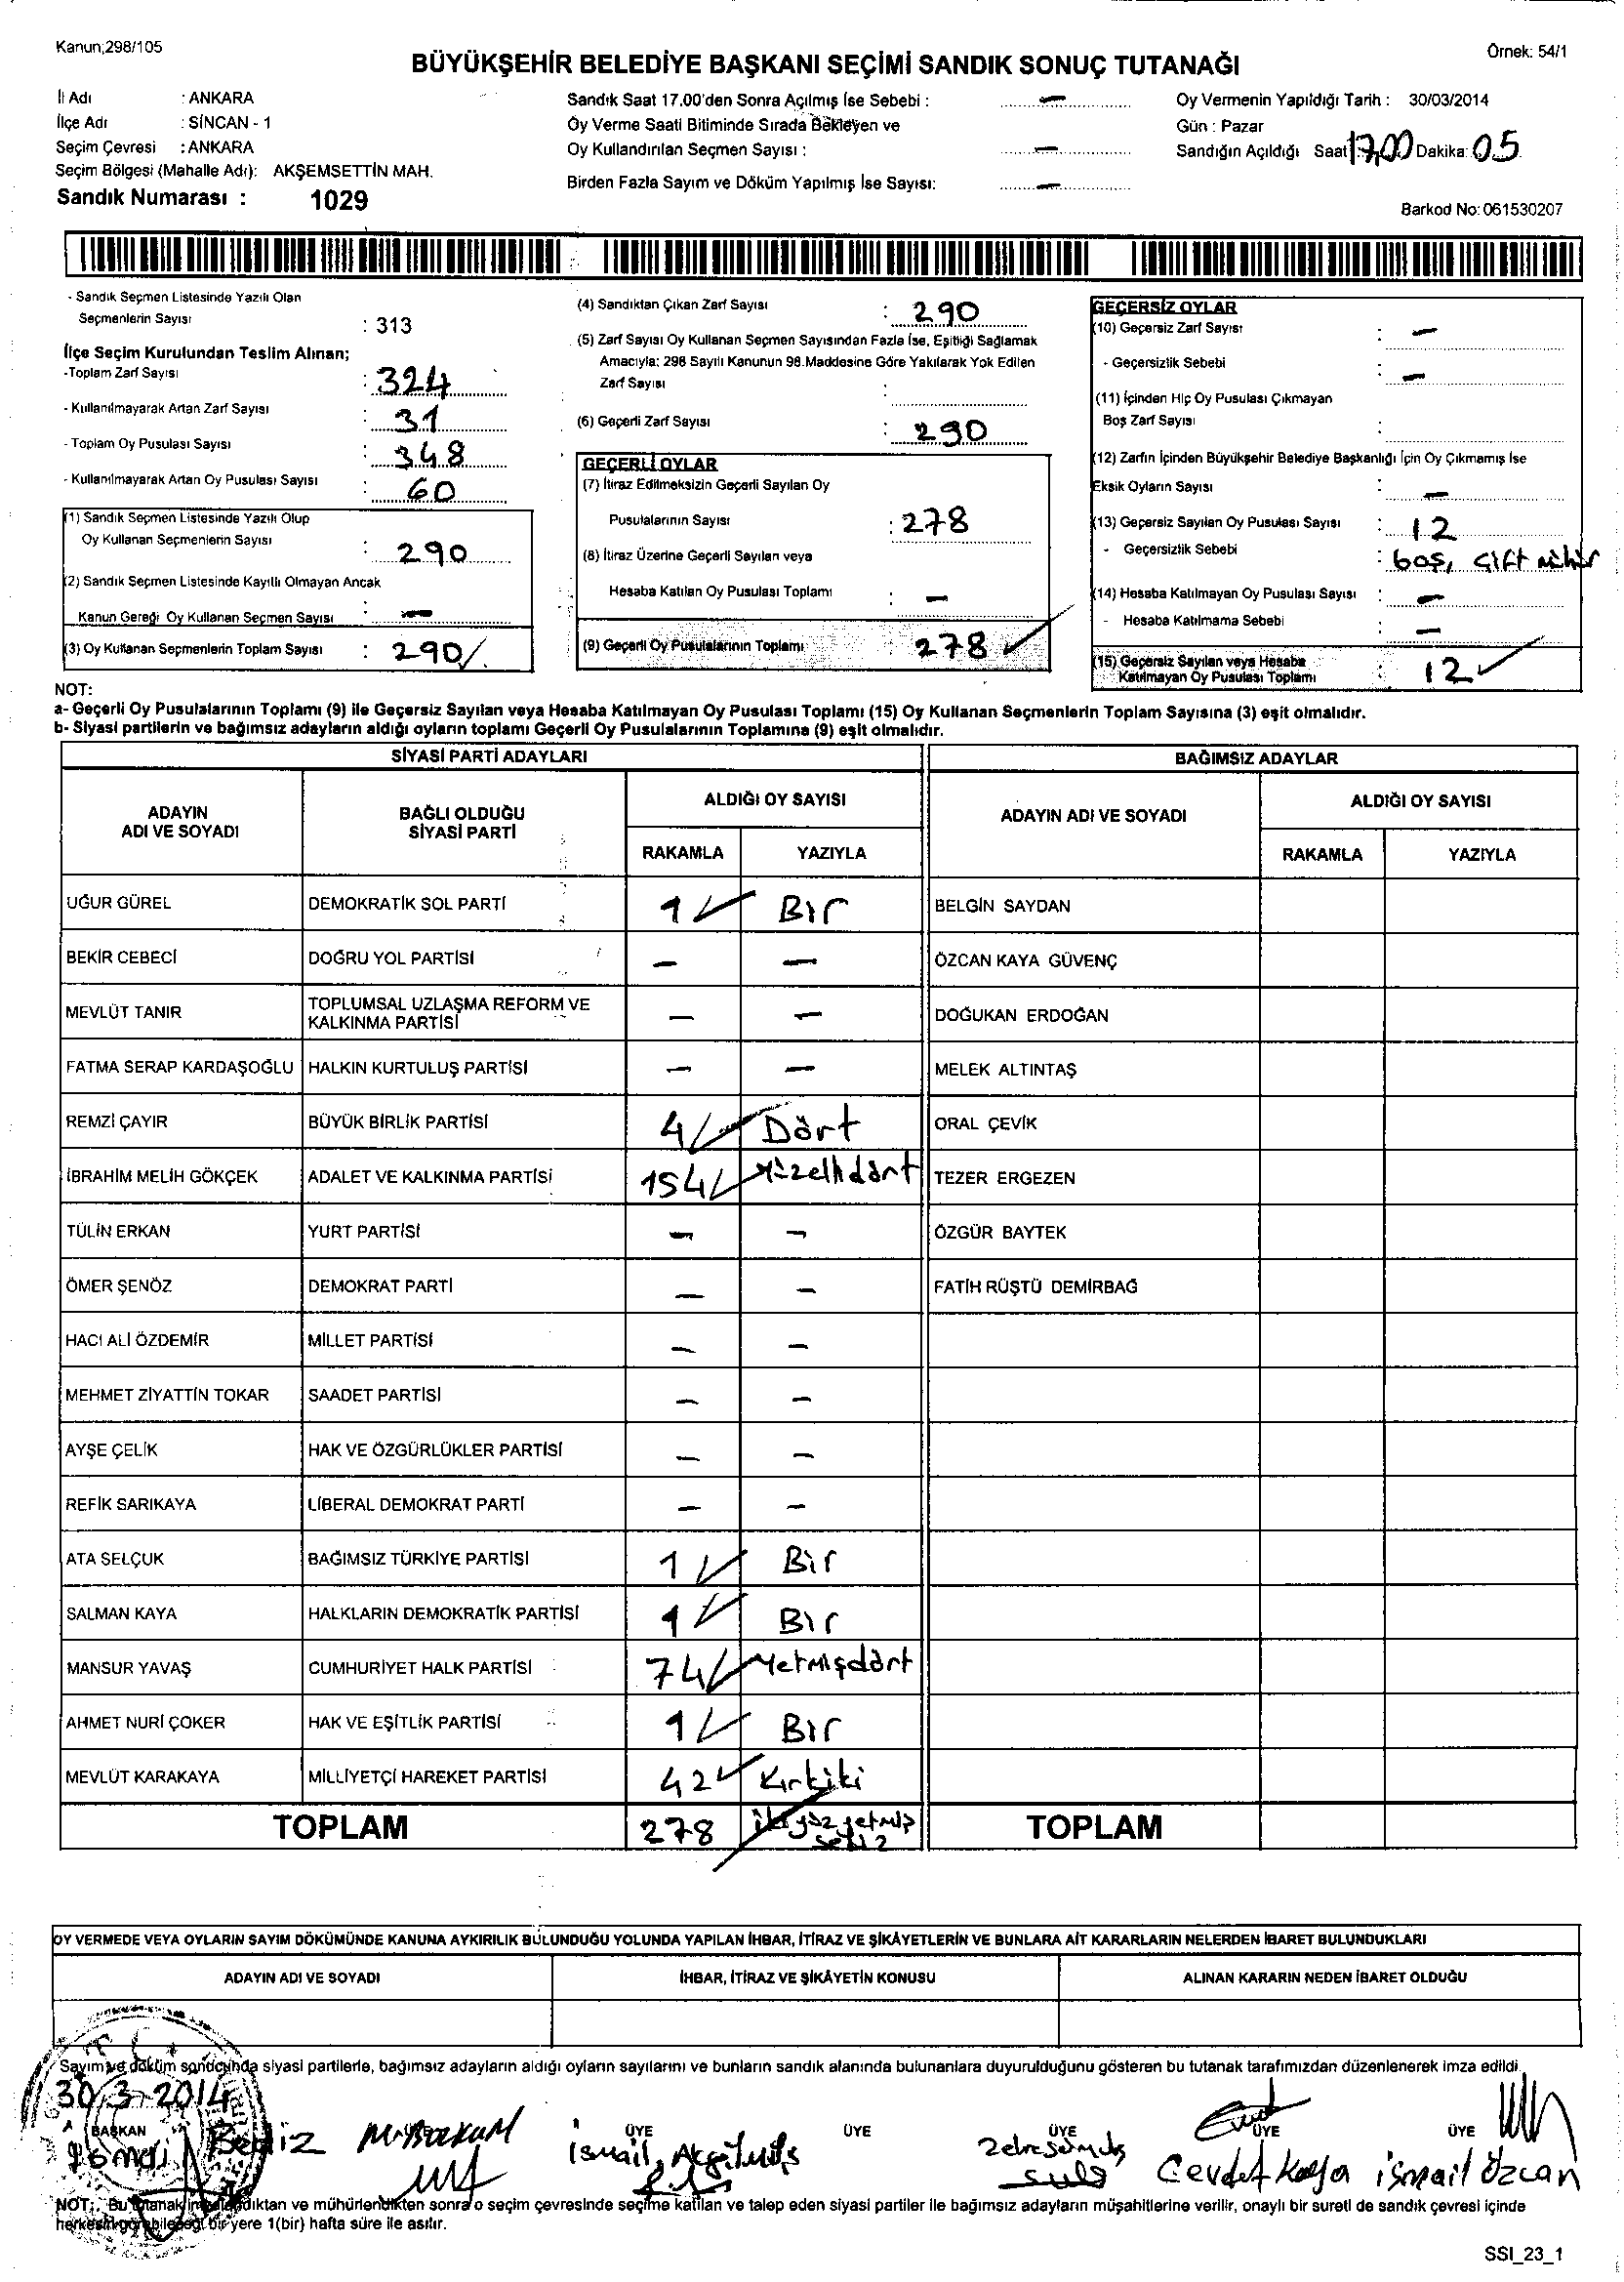 Kanun;298/105
Örnek: 54/1
BÜYÜKŞEHİR BELEDİYE BAŞKANI SEÇİMİ SANDIK SONUÇ TUTANAĞI
İl Adı : ANKARA
İlçe Adı : SİNCAN - 1
Seçim Çevresi : ANKARA
Seçim Bölgesi (Mahalle Adı): AKŞEMSETTİN MAH.
Sandık Numarası : 1029
Sandık Saat 17.00'den Sonra Açılmış İse Sebebi : —
Oy Verme Saati Bitiminde Sırada Bekleyen ve
Oy Kullandırılan Seçmen Sayısı : —
Birden Fazla Sayım ve Döküm Yapılmış İse Sayısı: —
Oy Vermenin Yapıldığı Tarih : 30/03/2014
Gün : Pazar
Sandığın Açıldığı Saat 17,00 Dakika: 05
Barkod No: 061530207
- Sandık Seçmen Listesinde Yazılı Olan
Seçmenlerin Sayısı : 313
İlçe Seçim Kurulundan Teslim Alınan;
-Toplam Zarf Sayısı : 324
- Kullanılmayarak Artan Zarf Sayısı : 31
- Toplam Oy Pusulası Sayısı : 348
- Kullanılmayarak Artan Oy Pusulası Sayısı : 60
(1) Sandık Seçmen Listesinde Yazılı Olup
Oy Kullanan Seçmenlerin Sayısı : 290
(2) Sandık Seçmen Listesinde Kayıtlı Olmayan Ancak
Kanun Gereği Oy Kullanan Seçmen Sayısı : —
(3) Oy Kullanan Seçmenlerin Toplam Sayısı : 290
(4) Sandıktan Çıkan Zarf Sayısı : 290
(5) Zarf Sayısı Oy Kullanan Seçmen Sayısından Fazla İse, Eşitliği Sağlamak
Amacıyla: 298 Sayılı Kanunun 98.Maddesine Göre Yakılarak Yok Edilen
Zarf Sayısı :
(6) Geçerli Zarf Sayısı : 290
GEÇERLİ OYLAR
(7) İtiraz Edilmeksizin Geçerli Sayılan Oy
Pusulalarının Sayısı : 278
(8) İtiraz Üzerine Geçerli Sayılan veya
Hesaba Katılan Oy Pusulası Toplamı : —
(9) Geçerli Oy Pusulalarının Toplamı : 278
GEÇERSİZ OYLAR
(10) Geçersiz Zarf Sayısı : —
- Geçersizlik Sebebi : —
(11) İçinden Hiç Oy Pusulası Çıkmayan
Boş Zarf Sayısı :
(12) Zarfın İçinden Büyükşehir Belediye Başkanlığı İçin Oy Çıkmamış İse
Eksik Oyların Sayısı : —
(13) Geçersiz Sayılan Oy Pusulası Sayısı : 12
- Geçersizlik Sebebi : boş, çift mühür
(14) Hesaba Katılmayan Oy Pusulası Sayısı : —
- Hesaba Katılmama Sebebi : —
(15) Geçersiz Sayılan veya Hesaba
Katılmayan Oy Pusulası Toplamı : 12
NOT:
a- Geçerli Oy Pusulalarının Toplamı (9) ile Geçersiz Sayılan veya Hesaba Katılmayan Oy Pusulası Toplamı (15) Oy Kullanan Seçmenlerin Toplam Sayısına (3) eşit olmalıdır.
b- Siyasi partilerin ve bağımsız adayların aldığı oyların toplamı Geçerli Oy Pusulalarının Toplamına (9) eşit olmalıdır.
SİYASİ PARTİ ADAYLARI
BAĞIMSIZ ADAYLAR
ADAYIN ADI VE SOYADI
BAĞLI OLDUĞU SİYASİ PARTİ
ALDIĞI OY SAYISI
RAKAMLA YAZIYLA
ADAYIN ADI VE SOYADI
ALDIĞI OY SAYISI
RAKAMLA YAZIYLA
UĞUR GÜREL DEMOKRATİK SOL PARTİ 1 Bir BELGİN SAYDAN
BEKİR CEBECİ DOĞRU YOL PARTİSİ — — ÖZCAN KAYA GÜVENÇ
MEVLÜT TANIR TOPLUMSAL UZLAŞMA REFORM VE KALKINMA PARTİSİ — — DOĞUKAN ERDOĞAN
FATMA SERAP KARDAŞOĞLU HALKIN KURTULUŞ PARTİSİ — — MELEK ALTINTAŞ
REMZİ ÇAYIR BÜYÜK BİRLİK PARTİSİ 4 Dört ORAL ÇEVİK
İBRAHİM MELİH GÖKÇEK ADALET VE KALKINMA PARTİSİ 154 Yüzellidört TEZER ERGEZEN
TÜLİN ERKAN YURT PARTİSİ — — ÖZGÜR BAYTEK
ÖMER ŞENÖZ DEMOKRAT PARTİ — — FATİH RÜŞTÜ DEMİRBAĞ
HACI ALİ ÖZDEMİR MİLLET PARTİSİ — —
MEHMET ZİYATTİN TOKAR SAADET PARTİSİ — —
AYŞE ÇELİK HAK VE ÖZGÜRLÜKLER PARTİSİ — —
REFİK SARIKAYA LİBERAL DEMOKRAT PARTİ — —
ATA SELÇUK BAĞIMSIZ TÜRKİYE PARTİSİ 1 Bir
SALMAN KAYA HALKLARIN DEMOKRATİK PARTİSİ 1 Bir
MANSUR YAVAŞ CUMHURİYET HALK PARTİSİ 74 Yetmişdört
AHMET NURİ ÇOKER HAK VE EŞİTLİK PARTİSİ 1 Bir
MEVLÜT KARAKAYA MİLLİYETÇİ HAREKET PARTİSİ 42 Kırkiki
TOPLAM 278 ikiyüzyetmiş sekiz TOPLAM
OY VERMEDE VEYA OYLARIN SAYIM DÖKÜMÜNDE KANUNA AYKIRILIK BULUNDUĞU YOLUNDA YAPILAN İHBAR, İTİRAZ VE ŞİKÂYETLERİN VE BUNLARA AİT KARARLARIN NELERDEN İBARET BULUNDUKLARI
ADAYIN ADI VE SOYADI İHBAR, İTİRAZ VE ŞİKÂYETİN KONUSU ALINAN KARARIN NEDEN İBARET OLDUĞU
Sayım ve döküm sonucunda siyasi partilerle, bağımsız adayların aldığı oyların sayılarını ve bunların sandık alanında bulunanlara duyurulduğunu gösteren bu tutanak tarafımızdan düzenlenerek imza edildi.
30.3.2014
BAŞKAN ÜYE ÜYE ÜYE ÜYE ÜYE
İsmail Cevdet Kaya İsmail Özcan
NOT: Bu tutanak imzalandıktan ve mühürlendikten sonra o seçim çevresinde seçime katılan ve talep eden siyasi partiler ile bağımsız adayların müşahitlerine verilir, onaylı bir sureti de sandık çevresi içinde
herkesin görebileceği bir yere 1(bir) hafta süre ile asılır.
SSI_23_1